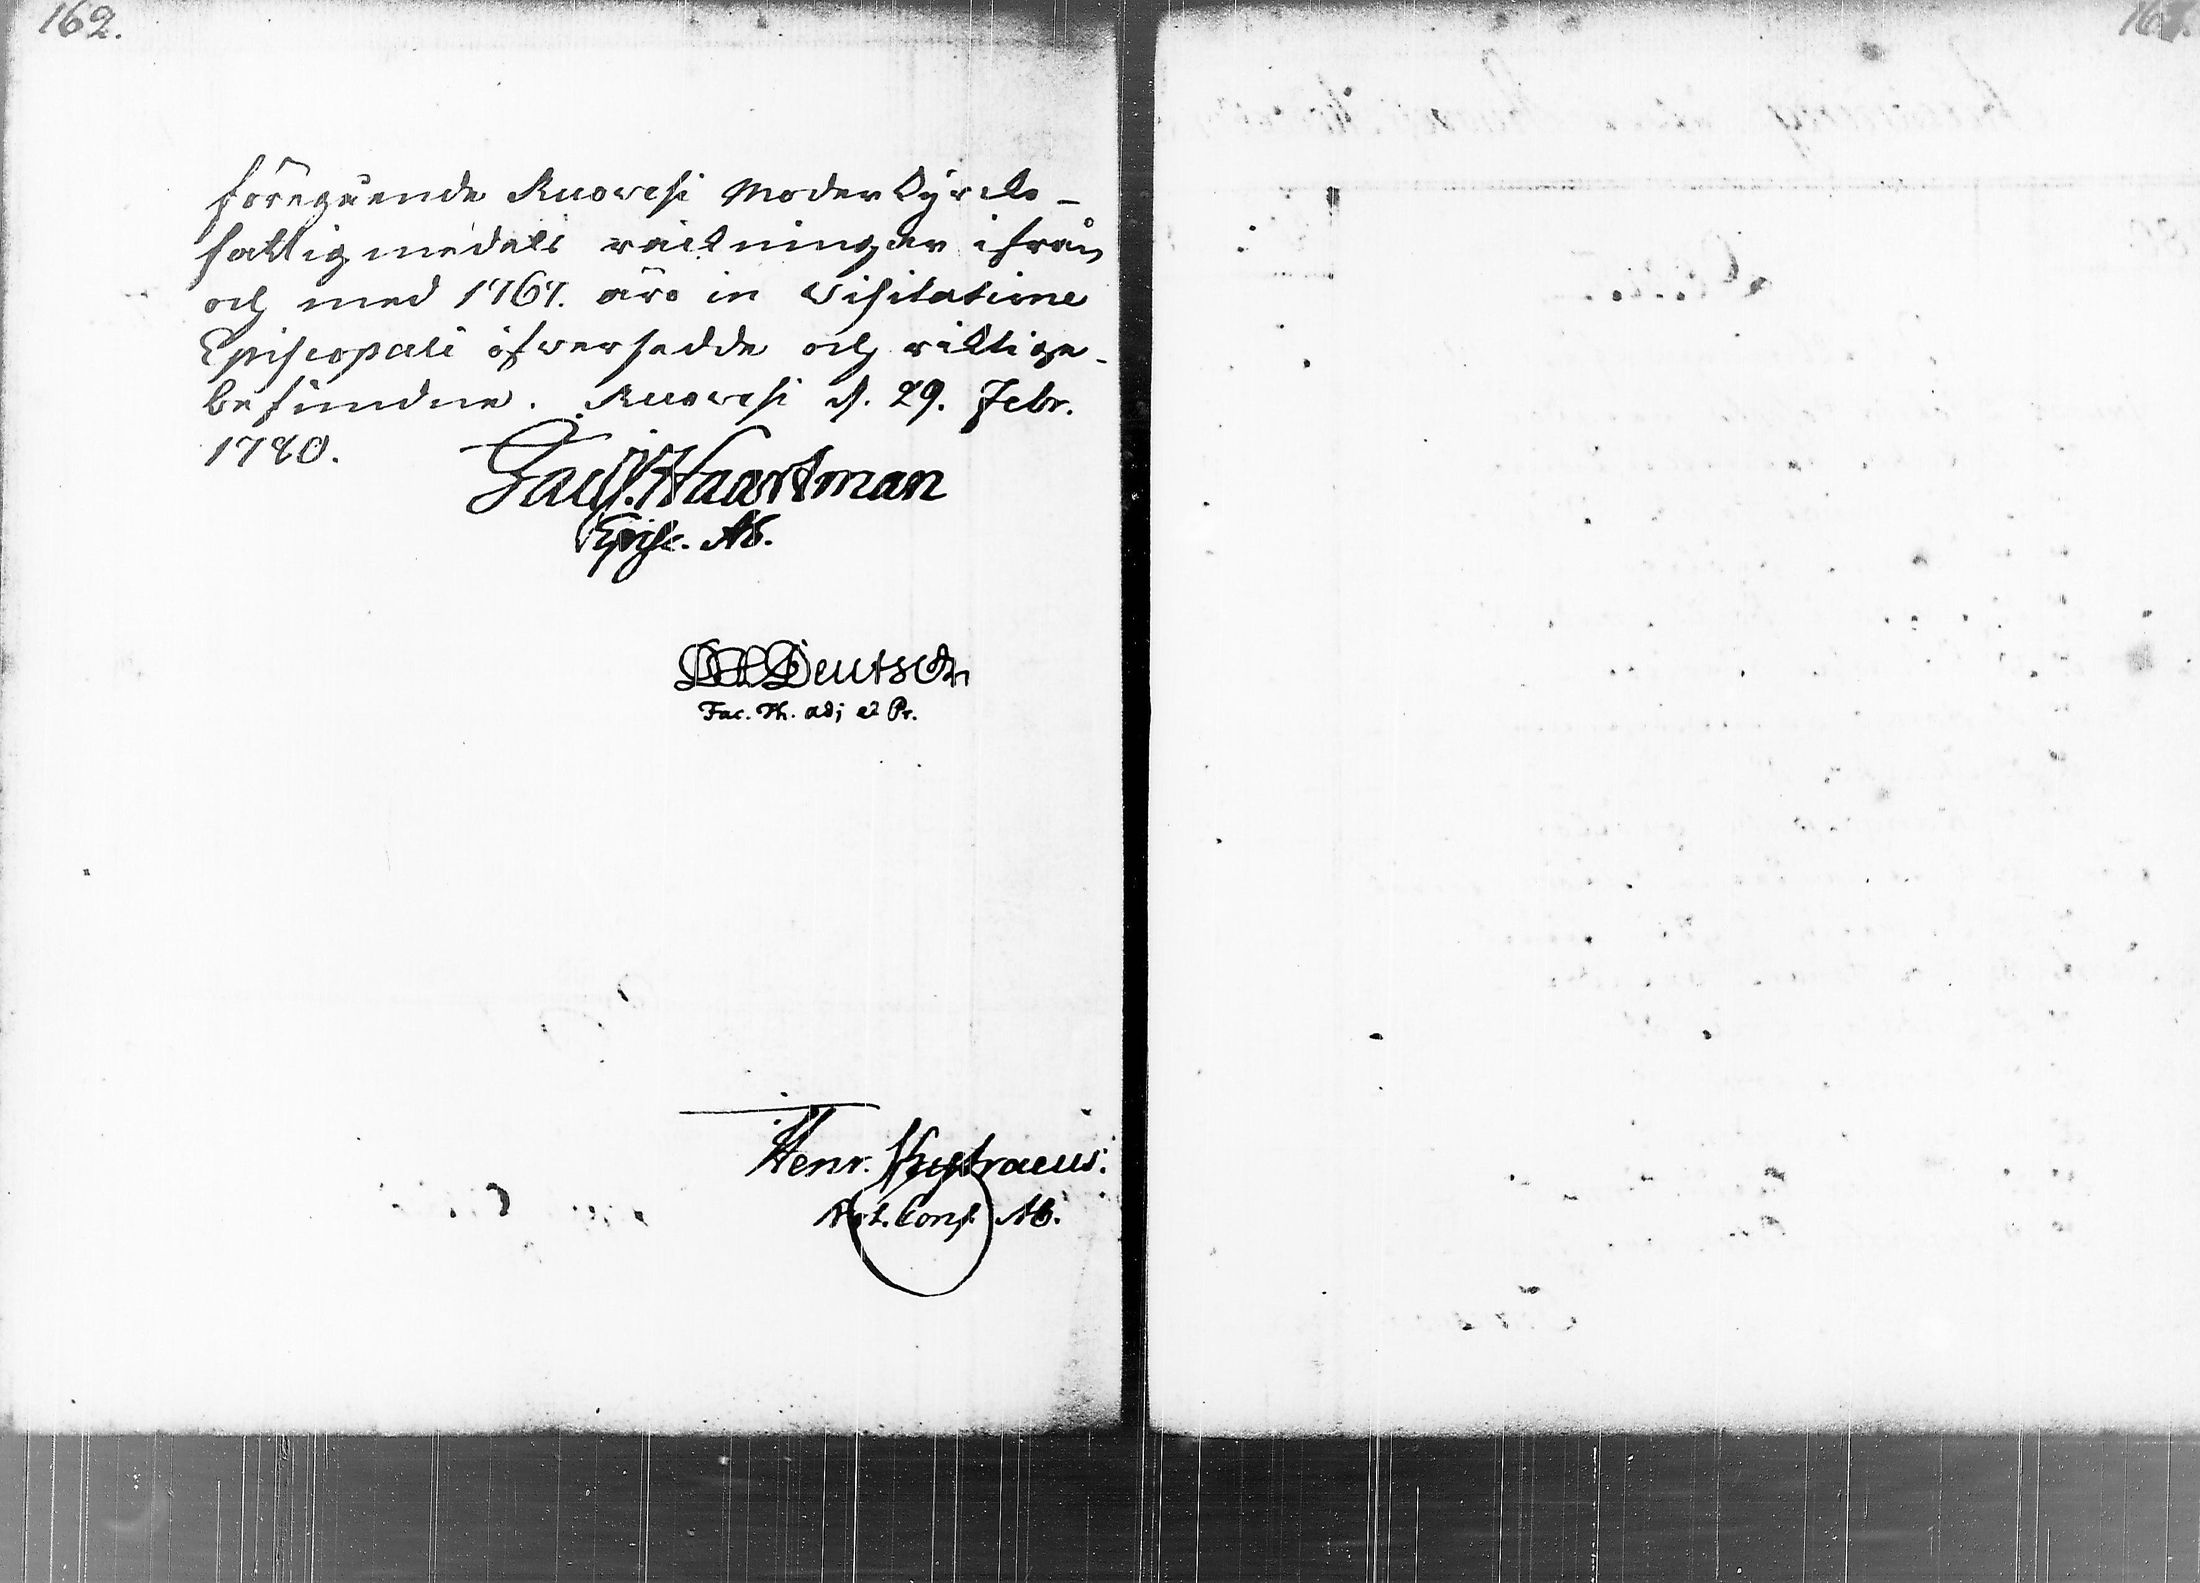 162.
föregående Ruovesi Moderkyrcko-
fattigmedels räckningar ifrån
och med 1767. äro in Visitatione
Episcopali öfversedde och richtige
befundne. Ruovesi d. 29. Febr.
1780.
Jac. Haartman
Episc. Ab.
Deutsch
Fac. Th. adj et Pr.
Henr.
Not. Cons. Ab.